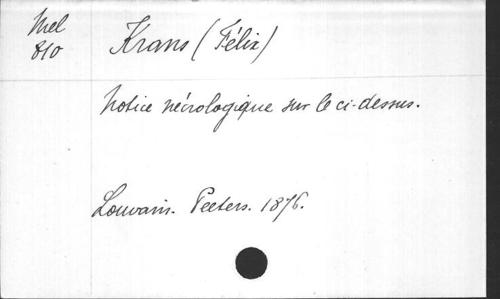 Mel
810
Krans (Félix)
Notice nécrologique sur le ci-dessus.
Louvain. Peeters. 1876.